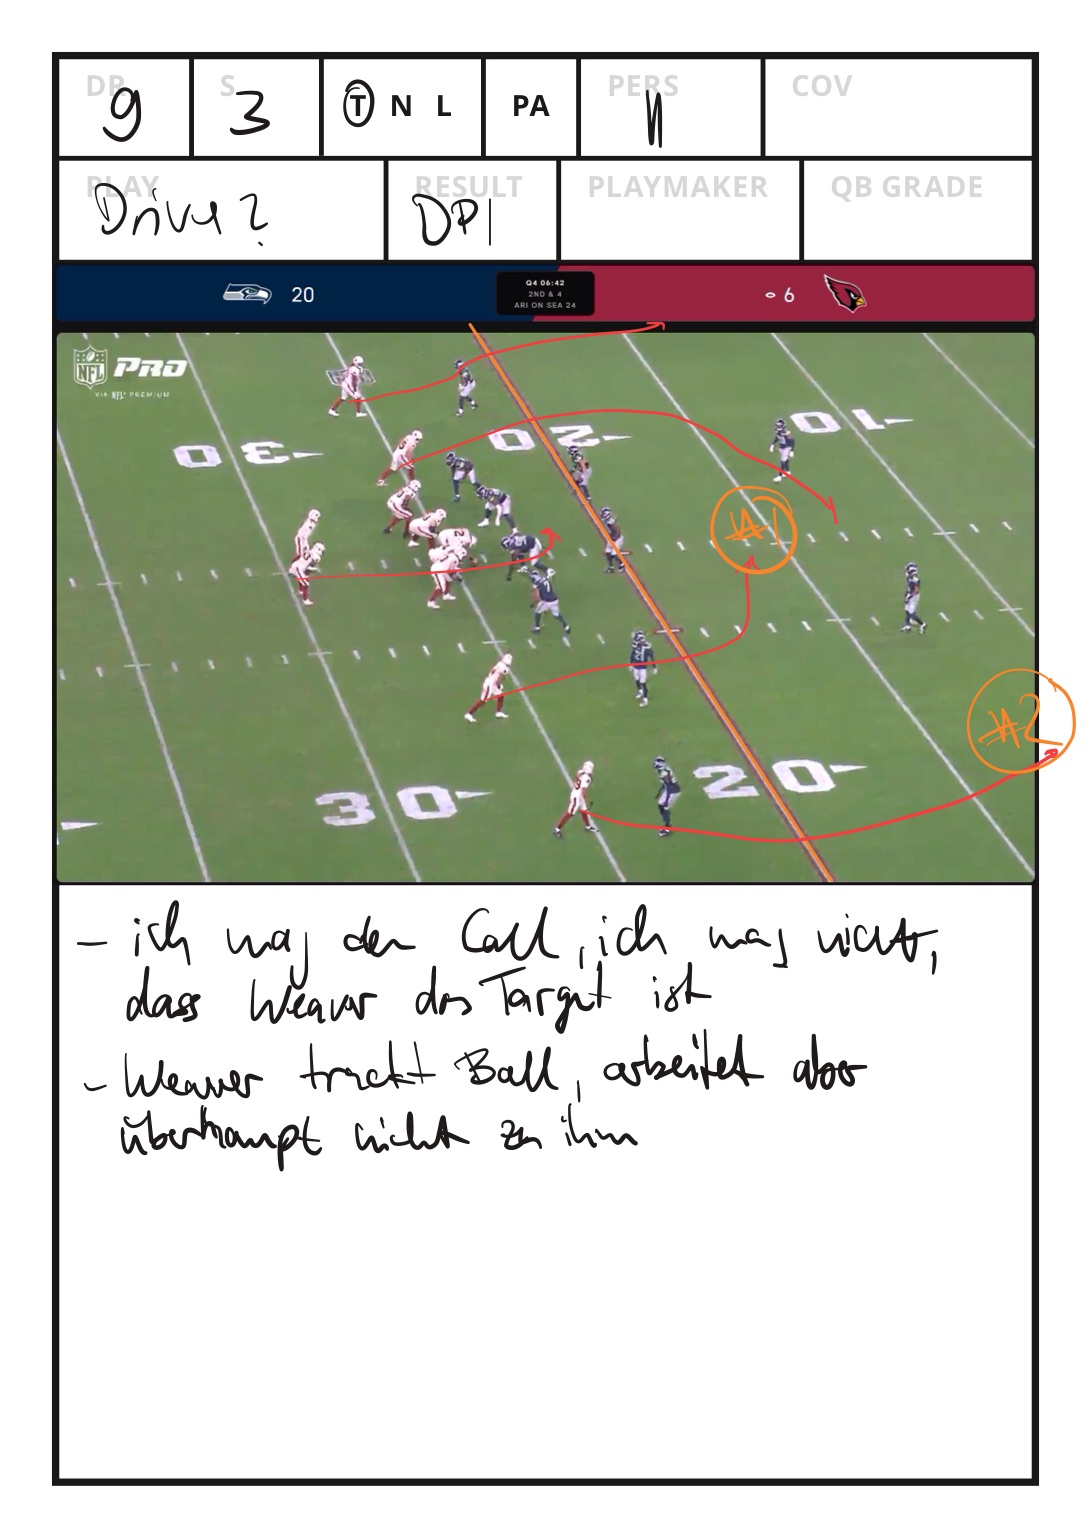 DR 9
S 3
T N L
PA
PERS 11
COV
PLAY Drive?
RESULT DPI
PLAYMAKER
QB GRADE
20
Q4 06:42
2ND & 4
ARI ON SEA 24
6
NFL PRO
VIA NFL+ PREMIUM
30
20
10
#1
#2
30
20
- ich mag den Call, ich mag nicht,
dass Weaver das Target ist
- Weaver trackt Ball, arbeitet aber
überhaupt nicht zu ihm